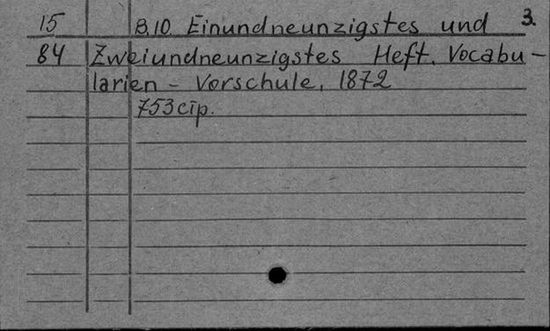 15 B.10. Einundneunzigstes und 3.
84 Zweiundneunzigstes Heft. Vocabu-
larien - Vorschule, 1872
753 стр.